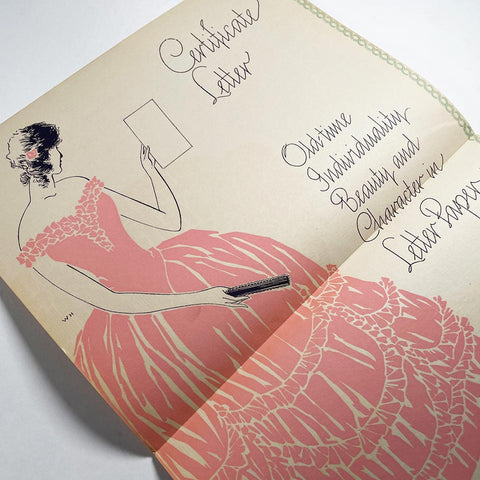 Certificate
Letter
Old-time
Individuality
Beauty and
Character in
Letter Paper
WH